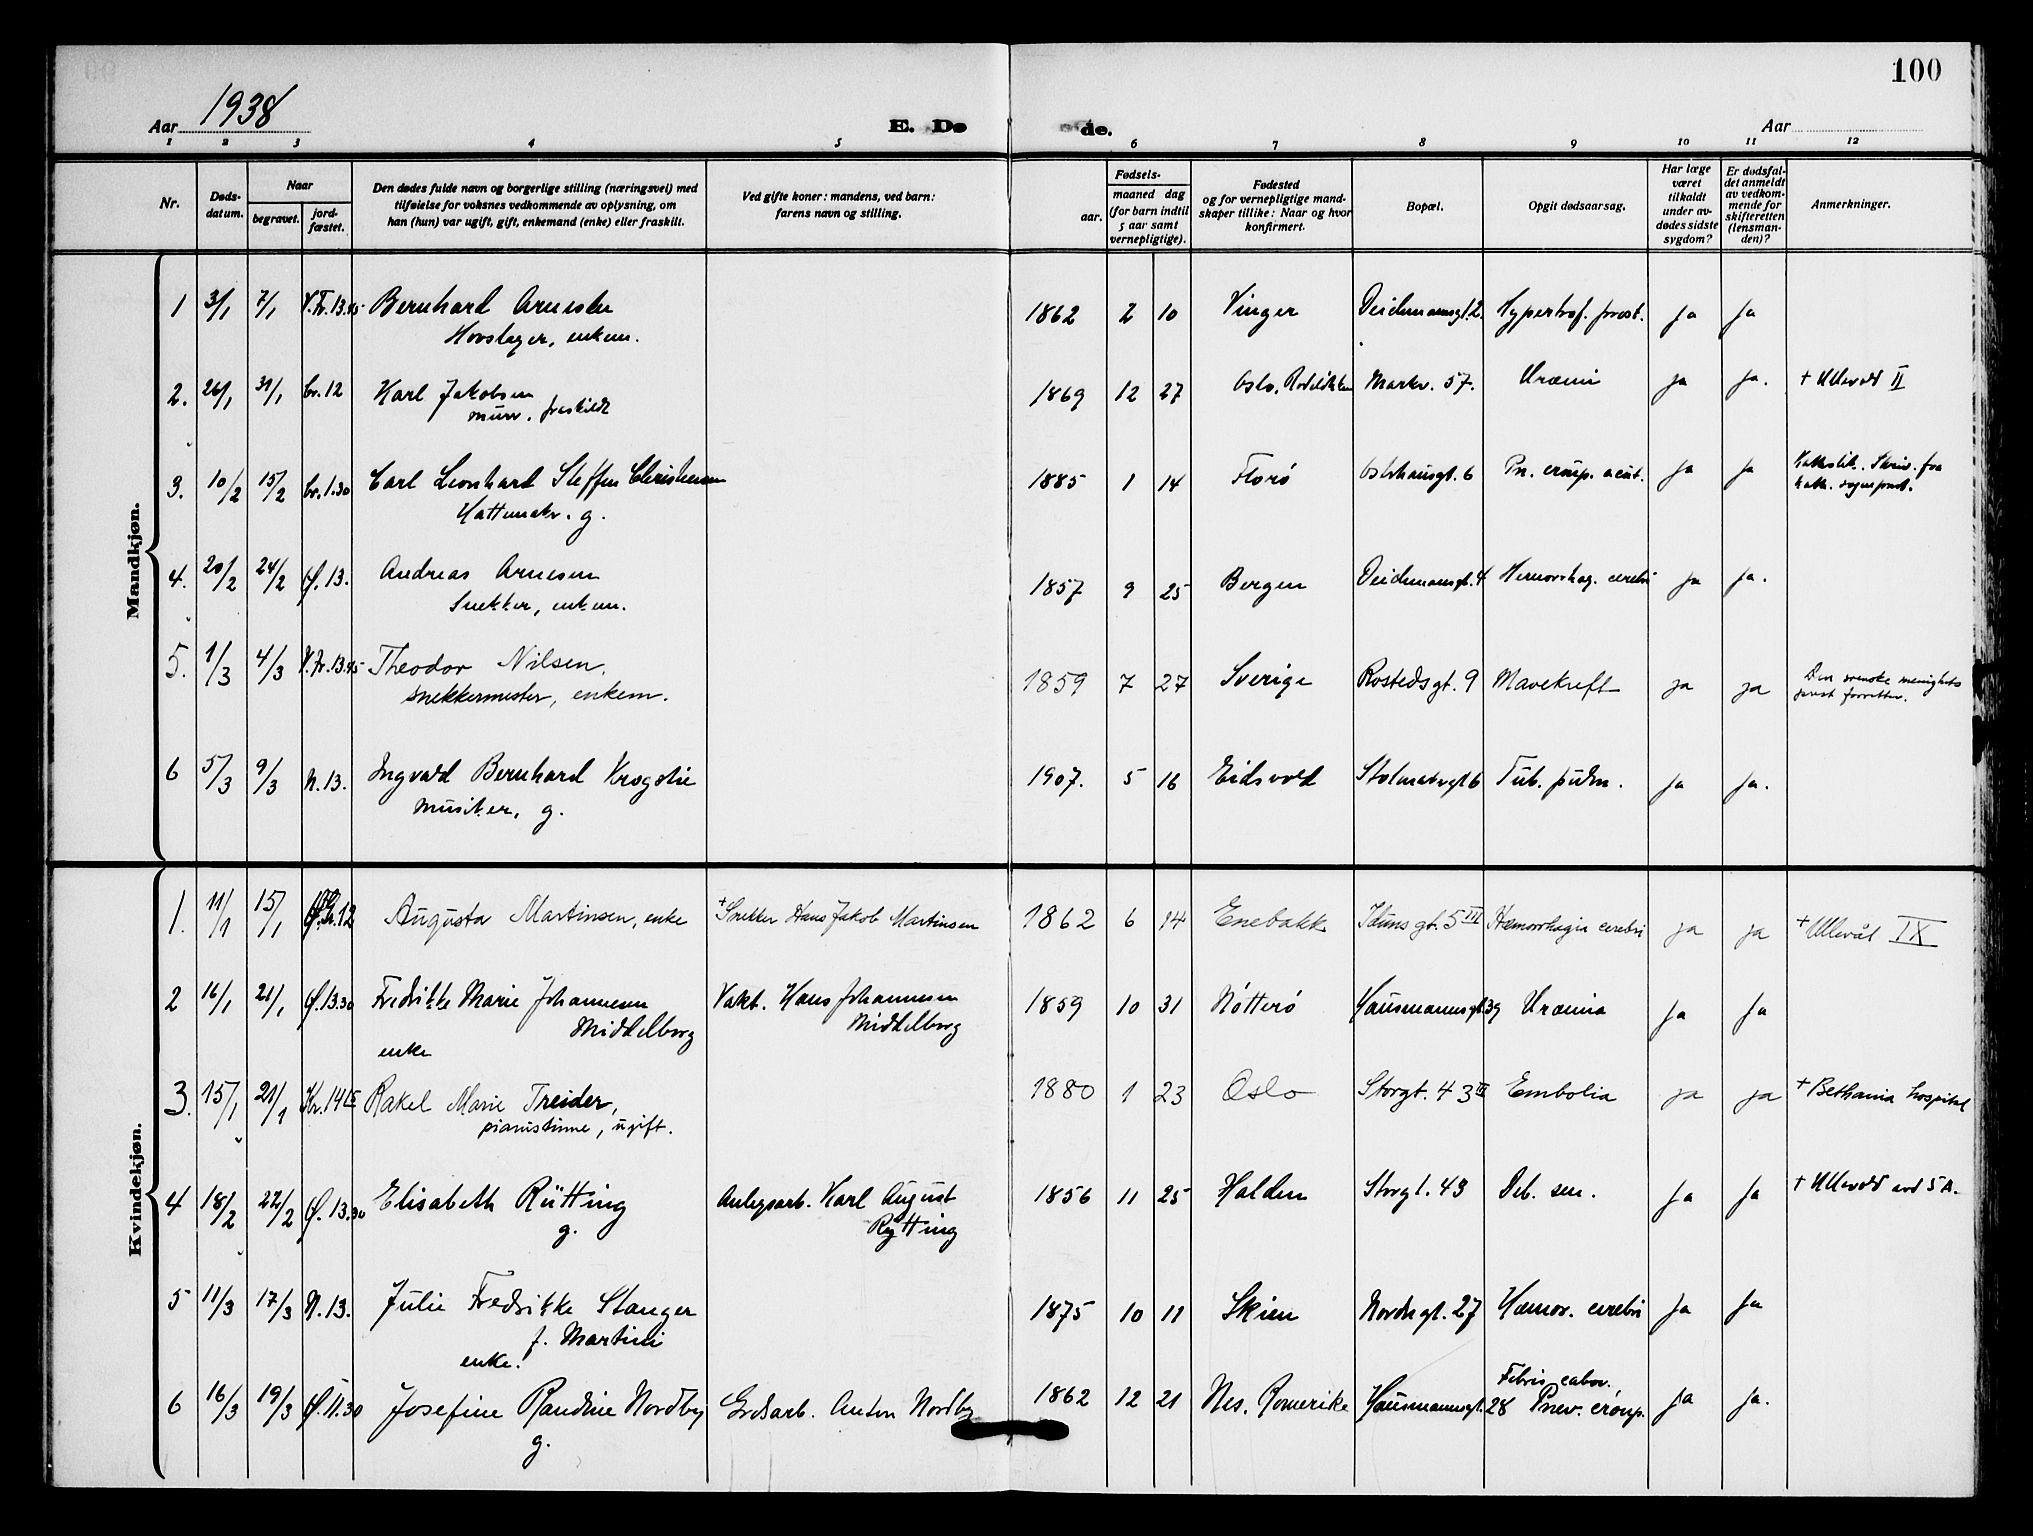 100
Aar 1938
E. Dø de.
Aar
1 2 3 4 5 6 7 8 9 10 11 12
Nr.
Døds-
datum.
Naar
begravet.
jord-
fæstet.
Den dødes fulde navn og borgerlige stilling (næringsvei) med
tilføielse for voksnes vedkommende av oplysning, om
han (hun) var ugift, gift, enkemand (enke) eller fraskilt.
Ved gifte koner: mandens, ved barn:
farens navn og stilling.
Fødsels-
aar.
maaned dag
(for barn indtil
5 aar samt
vernepligtige).
Fødested
og for vernepligtige mand-
skaper tillike: Naar og hvor
konfirmert.
Bopæl.
Opgit dødsaarsag.
Har læge
været
tilkaldt
under av-
dødes sidste
sygdom?
Er dødsfal-
det anmeldt
av vedkom-
mende for
skifteretten
(lensman-
den)?
Anmerkninger.
Mandkjøn.
1 3/1 7/1 V.Fr.13.45 Bernhard Arnesen 1862 2 10 Vinger Deichmannsgt.2. Hypertrof. prost. ja ja
Hovslager, enkem.
2. 26/1 31/1 kr.12 Karl Jakobsen 1869 12 27 Oslo, Markv. 57. Uræmi ja ja. + Ullevål II
murer, fraskilt
3. 10/2 15/2 kr.1.30 Carl Leonhard Steffen Christensen 1885 1 14 Florø Osterhausgt. 6 Pn. croup. acut. ja ja Katholik. Skriv. fra
kath. sogneprest.
Hattemakr. g.
4. 20/2 24/2 Ø.13. Andreas Arnesen 1857 9 25 Bergen Deichmannsgt. 4 Hemorrhag. cerebri ja ja.
Snekker, enkem.
5. 1/3 4/3 V.Fr.13.45 Theodor Nilsen, 1859 7 27 Sverige Rostedsgt. 9 Mavekreft ja ja Den svenske menighets
prest forretter.
snekkermester, enkem.
6 5/3 9/3 N.13. Ingvald Bernhard Krogstie 1907. 5 16 Eidsvold Stolmakergt 6 Tub. pulm. ja ja.
musiker, g.
Kvindekjøn.
1. 11/1 15/1 12 Augusta Martinsen, enke + Snekker Hans Jakob Martinsen 1862 6 14 Enebakk Idunsgt. 5 III Hæmorrhagia cerebri ja ja + Ullevål IX
2 16/1 21/1 Ø.13.30 Fredrikke Marie Johannesen Vakt. Hans Johannesen 1859 10 31 Nøtterø Hausmannsgt.39 Uræmia ja ja
Middelborg Middelborg
enke
3. 15/1 21/1 Kr.14 15 Rakel Marie Treider, 1880 1 23 Oslo Storgt. 43 III Embolia ja ja + Bethania hospital
pianistinne, ugift.
4 18/2 22/2 Ø.13.30 Elisabeth Rütting Anlegsarb. Karl August 1856 11 25 Halden Storgt. 43 Deb. sen. ja ja + Ullevål avd 5 A.
g. Rytting
5 11/3 17/3 N.13. Julie Fredrikke Stanger 1875 10 11 Skien Nordregt. 27 Hæmor. cerebri ja ja
f. Martini
enke.
6 16/3 19/3 Ø.11.30 Josefine Randine Nordby Grdsarb. Anton Nordby 1862 12 21 Nes, Romerike Hausmannsgt. 28 Pnev. croup. ja ja.
g.